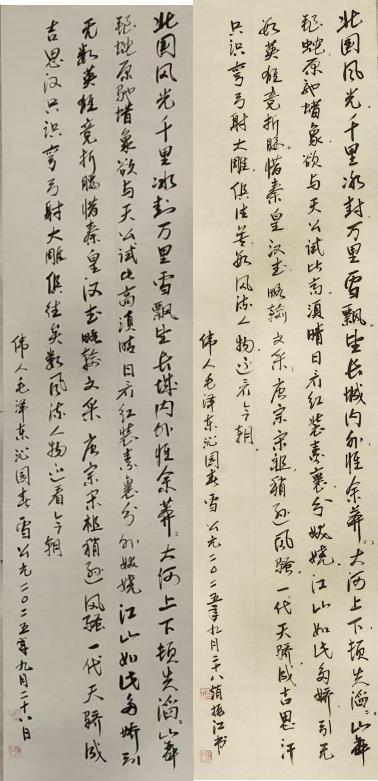 北国风光千里冰封万里雪飘望长城内外惟余莽〻大河上下顿失滔〻山舞
银蛇原驰蜡象欲与天公试比高须晴日看红装素裹分妖娆江山如此多娇引无
数英雄竞折腰惜秦皇汉武略输文采唐宗宋祖稍逊风骚一代天骄成吉思汗
只识弯弓射大雕俱往矣数风流人物还看今朝
伟人毛泽东沁园春雪公元二〇二五年九月二十八振江书
北国风光千里冰封万里雪飘望长城内外惟余莽〻大河上下顿失滔〻山舞
银蛇原驰蜡象欲与天公试比高须晴日看红装素裹分外妖娆江山如此多娇引
无数英雄竞折腰惜秦皇汉武略输文采唐宗宋祖稍逊风骚一代天骄成
吉思汗只识弯弓射大雕俱往矣数风流人物还看今朝
伟人毛泽东沁园春雪公元二〇二五年九月二十八日